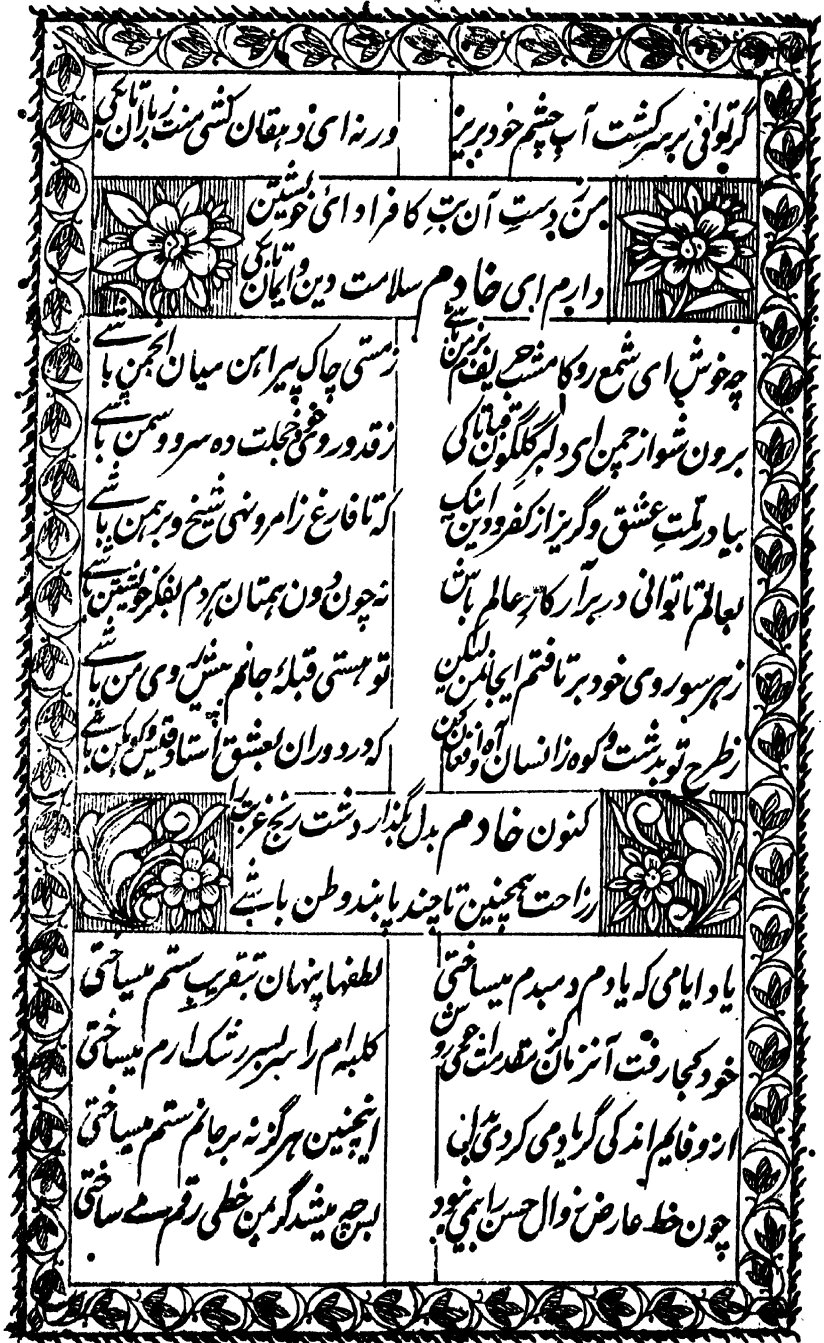 گر توانی بر سر کشت آب چشم خود بریز ورنه ای دهقان کشی منت ز باران تا بکی
من ز دستِ آن بتِ کافر ادائی خویشتن
دارم ای خادم سلامت دین و ایمان تا بکی
چه خوش ای شمع رو کامشب حریف بزم من باشے ز مستی چاک پیراهن میان انجمن باشے
برون شو از چمن ای دلبر گلگون قبا تا کی ز قد و روی خجلت ده سرو و سمن باشے
بیا در ملّتِ عشق و گریز از کفر و دین اینک که تا فارغ ز امر و نهی شیخ و برهمن باشے
بعالم تا توانی در برآر کارِ عالم باش نه چون دون همتان هردم بفکر خویشتن باشے
ز هر سو روی خود برتافتم ایجان من لیکن تو هستی قبلۂ جانم به پیش روی من باشے
ز طرح تو بدشت و کوه زانسان آه و افغان کن که در دوران بعشق استاد قیس و کوهکن باشے
کنون خادم بدل بگذار دشت رنج غربت را
ز راحت همچنین تا چند پابند وطن باشے
یاد ایامی که یادم دمبدم میساختی لطفها پنهان بتقریب ستم میساختی
خود کجا رفت آنزمان کز مقدمت ای حوروش کلبه ام را سربسر رشک ارم میساختی
از وفایم اندکی گر یاد می کردی اینچنین هرگز نه بر جانم ستم میساختی
چون خط عارض زوال حسن را می نمود بس چه میشد گر بمن خطی رقم مے ساختی